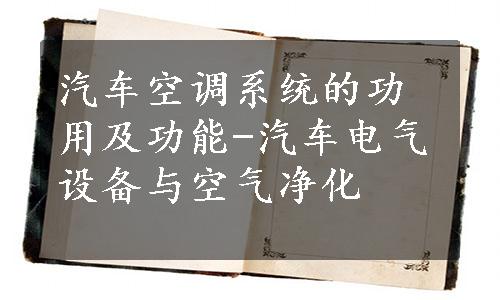 汽车空调系统的功
用及功能-汽车电气
设备与空气净化